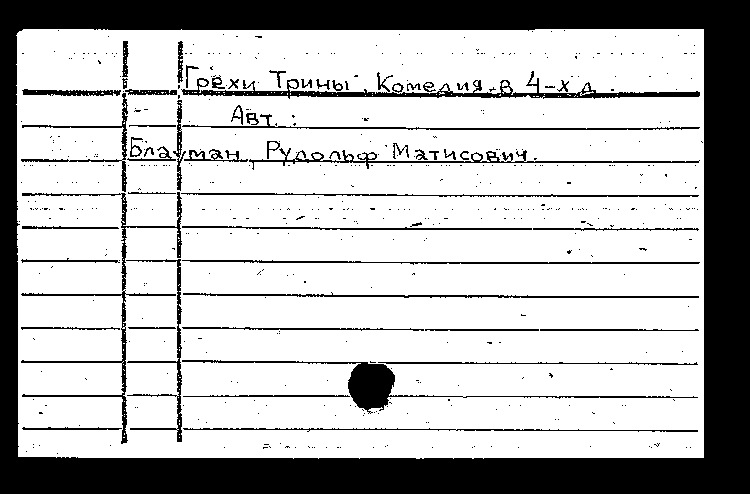 Грехи Трины. Комедия в 4-х д.
Авт. :
Блауман, Рудольф Матисович.